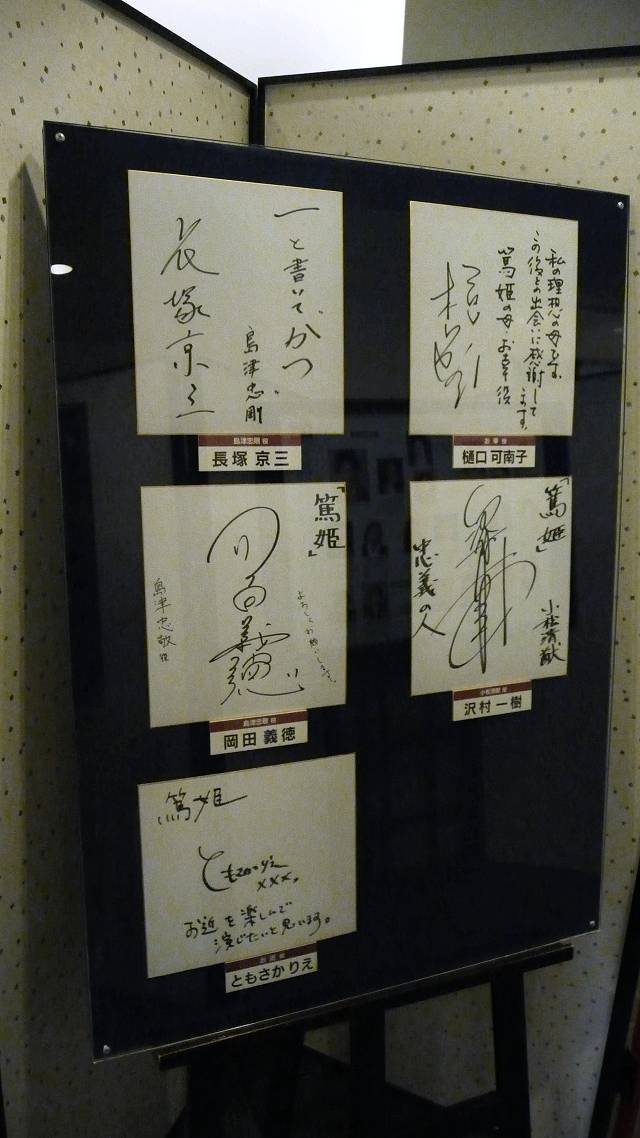 一と書いてかつ
島津忠剛
長塚京三
島津忠剛 役
長塚 京三
私の理想の母です。
この役との出会いに感謝して
ます。
篤姫の母・お幸役
お幸 役
樋口 可南子
「篤姫」
よろしくお願いします。
岡田義徳
島津忠敬 役
島津忠敬 役
岡田 義徳
「篤姫」
小松清猷
忠義の人
小松清猷 役
沢村 一樹
篤姫
ともさかりえ
xxx。
お近を楽しんで
演じたいと思います。
お近 役
ともさか りえ